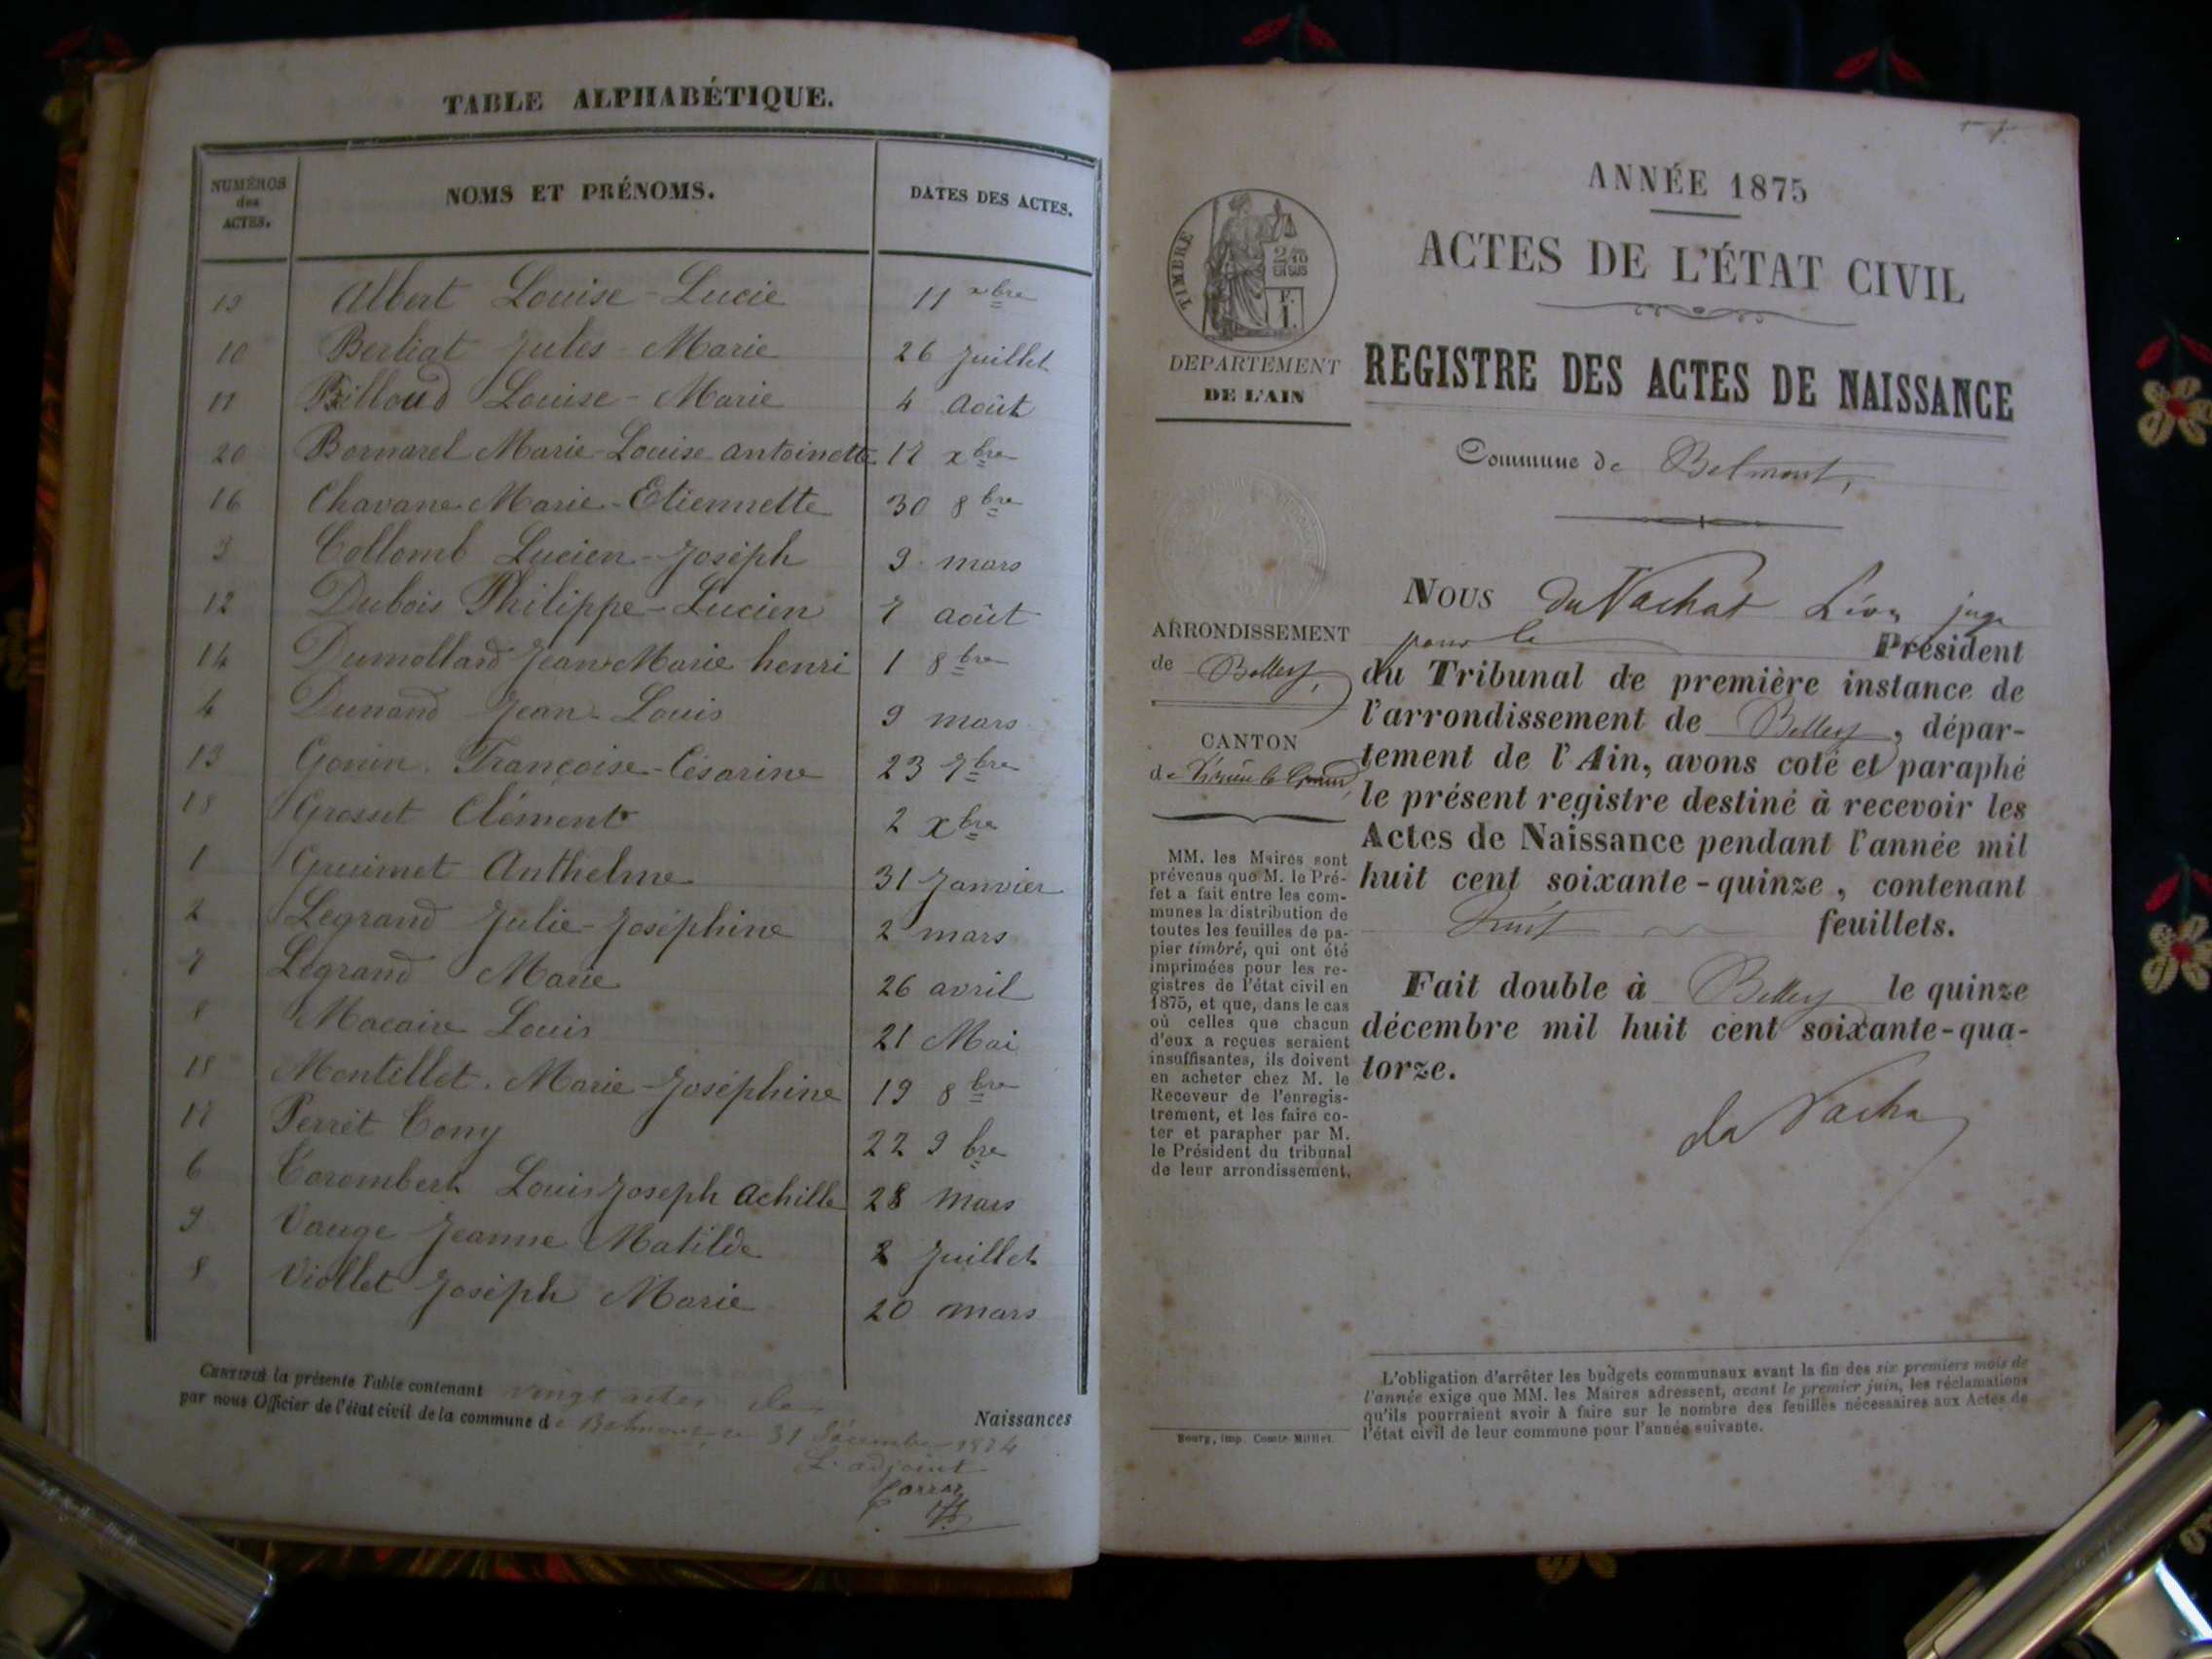 TABLE ALPHABÉTIQUE.
NUMÉROS des ACTES. NOMS ET PRÉNOMS. DATES DES ACTES.
19 Albert Louise-Lucie 11 xbre
10 Berliat Jules-Marie 26 Juillet
11 Billoud Louise-Marie 4 Août
20 Bornarel Marie-Louise Antoinette 17 xbre
16 Chavane Marie-Etiennette 30 8bre
3 Collomb Lucien-Joséph 9 mars
12 Dubois Philippe-Lucien 7 août
14 Dumollard Jean Marie henri 1 8bre
4 Dunand Jean-Louis 9 mars
13 Gonin Françoise-Césarine 23 7bre
18 Grosset Clément 2 xbre
1 Guimet Anthelme 31 Janvier
2 Legrand Julie-Joséphine 2 mars
7 Legrand Marie 26 avril
8 Macaire Louis 21 Mai
15 Montillet Marie-Joséphine 19 8bre
17 Perret Tony 22 9bre
6 Carombert Louis Joseph Achille 28 Mars
9 Vauge Jeanne Matilde 2 Juillet
5 Viollet Joséph Marie 20 mars
CERTIFIÉ la présente Table contenant vingt actes de Naissances
par nous Officier de l'état civil de la commune de Belmont, le 31 Décembre 1874
L'adjoint
TIMBRE
2/10
EN SUS
DEPARTEMENT
DE L'AIN
ARRONDISSEMENT
de Belley,
CANTON
de Virieu le Grand,
MM. les Maires sont
prévenus que M. le Pré-
fet a fait entre les com-
munes la distribution de
toutes les feuilles de pa-
pier timbré, qui ont été
imprimées pour les re-
gistres de l'état civil en
1875, et que, dans le cas
où celles que chacun
d'eux a reçues seraient
insuffisantes, ils doivent
en acheter chez M. le
Receveur de l'enregis-
trement, et les faire co-
ter et parapher par M.
le Président du tribunal
de leur arrondissement.
Bourg, imp. Comte-Milliet.
ANNÉE 1875
ACTES DE L'ÉTAT CIVIL
REGISTRE DES ACTES DE NAISSANCE
Commune de Belmont,
NOUS du Vachat Léon juge
pour le Président
du Tribunal de première instance de
l'arrondissement de Belley, dépar-
tement de l'Ain, avons coté et paraphé
le présent registre destiné à recevoir les
Actes de Naissance pendant l'année mil
huit cent soixante-quinze, contenant
huit feuillets.
Fait double à Belley le quinze
décembre mil huit cent soixante-qua-
torze.
du Vacha
L'obligation d'arrêter les budgets communaux avant la fin des six premiers mois de
l'année exige que MM. les Maires adressent, avant le premier juin, les réclamations
qu'ils pourraient avoir à faire sur le nombre des feuilles nécessaires aux Actes de
l'état civil de leur commune pour l'année suivante.